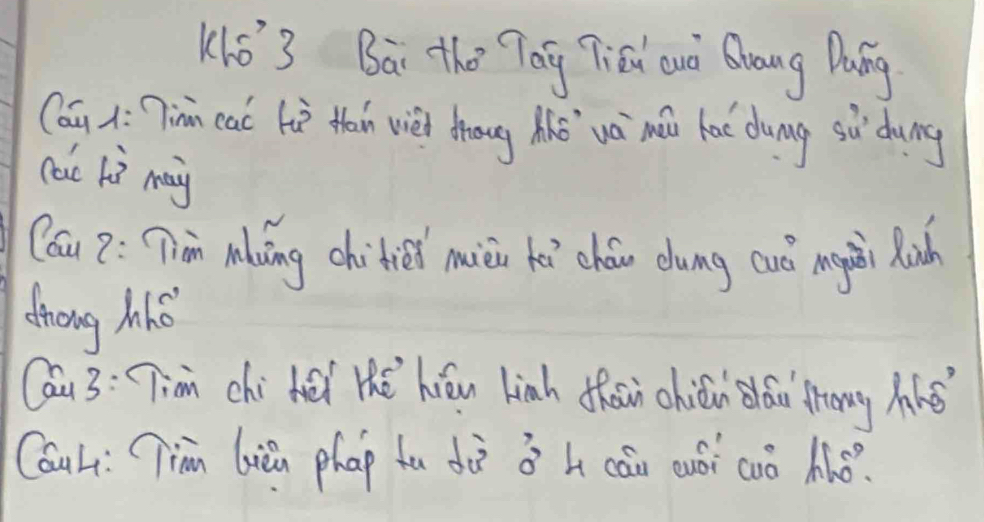 Khổ 3 Bài thơ Tây Tiến của Quang Dũng.
Câu 1: Tìm các từ Hán việt trong khổ và nêu tác dụng sử dụng
các từ này
Câu 2: Tìm những chi tiết miêu tả chân dung của người lính
trong khổ
Câu 3: Tìm chi tiết thể hiện tinh thần chiến đấu trong khổ
Câu 4: Tìm biện pháp tu từ ở 4 câu cuối của khổ.